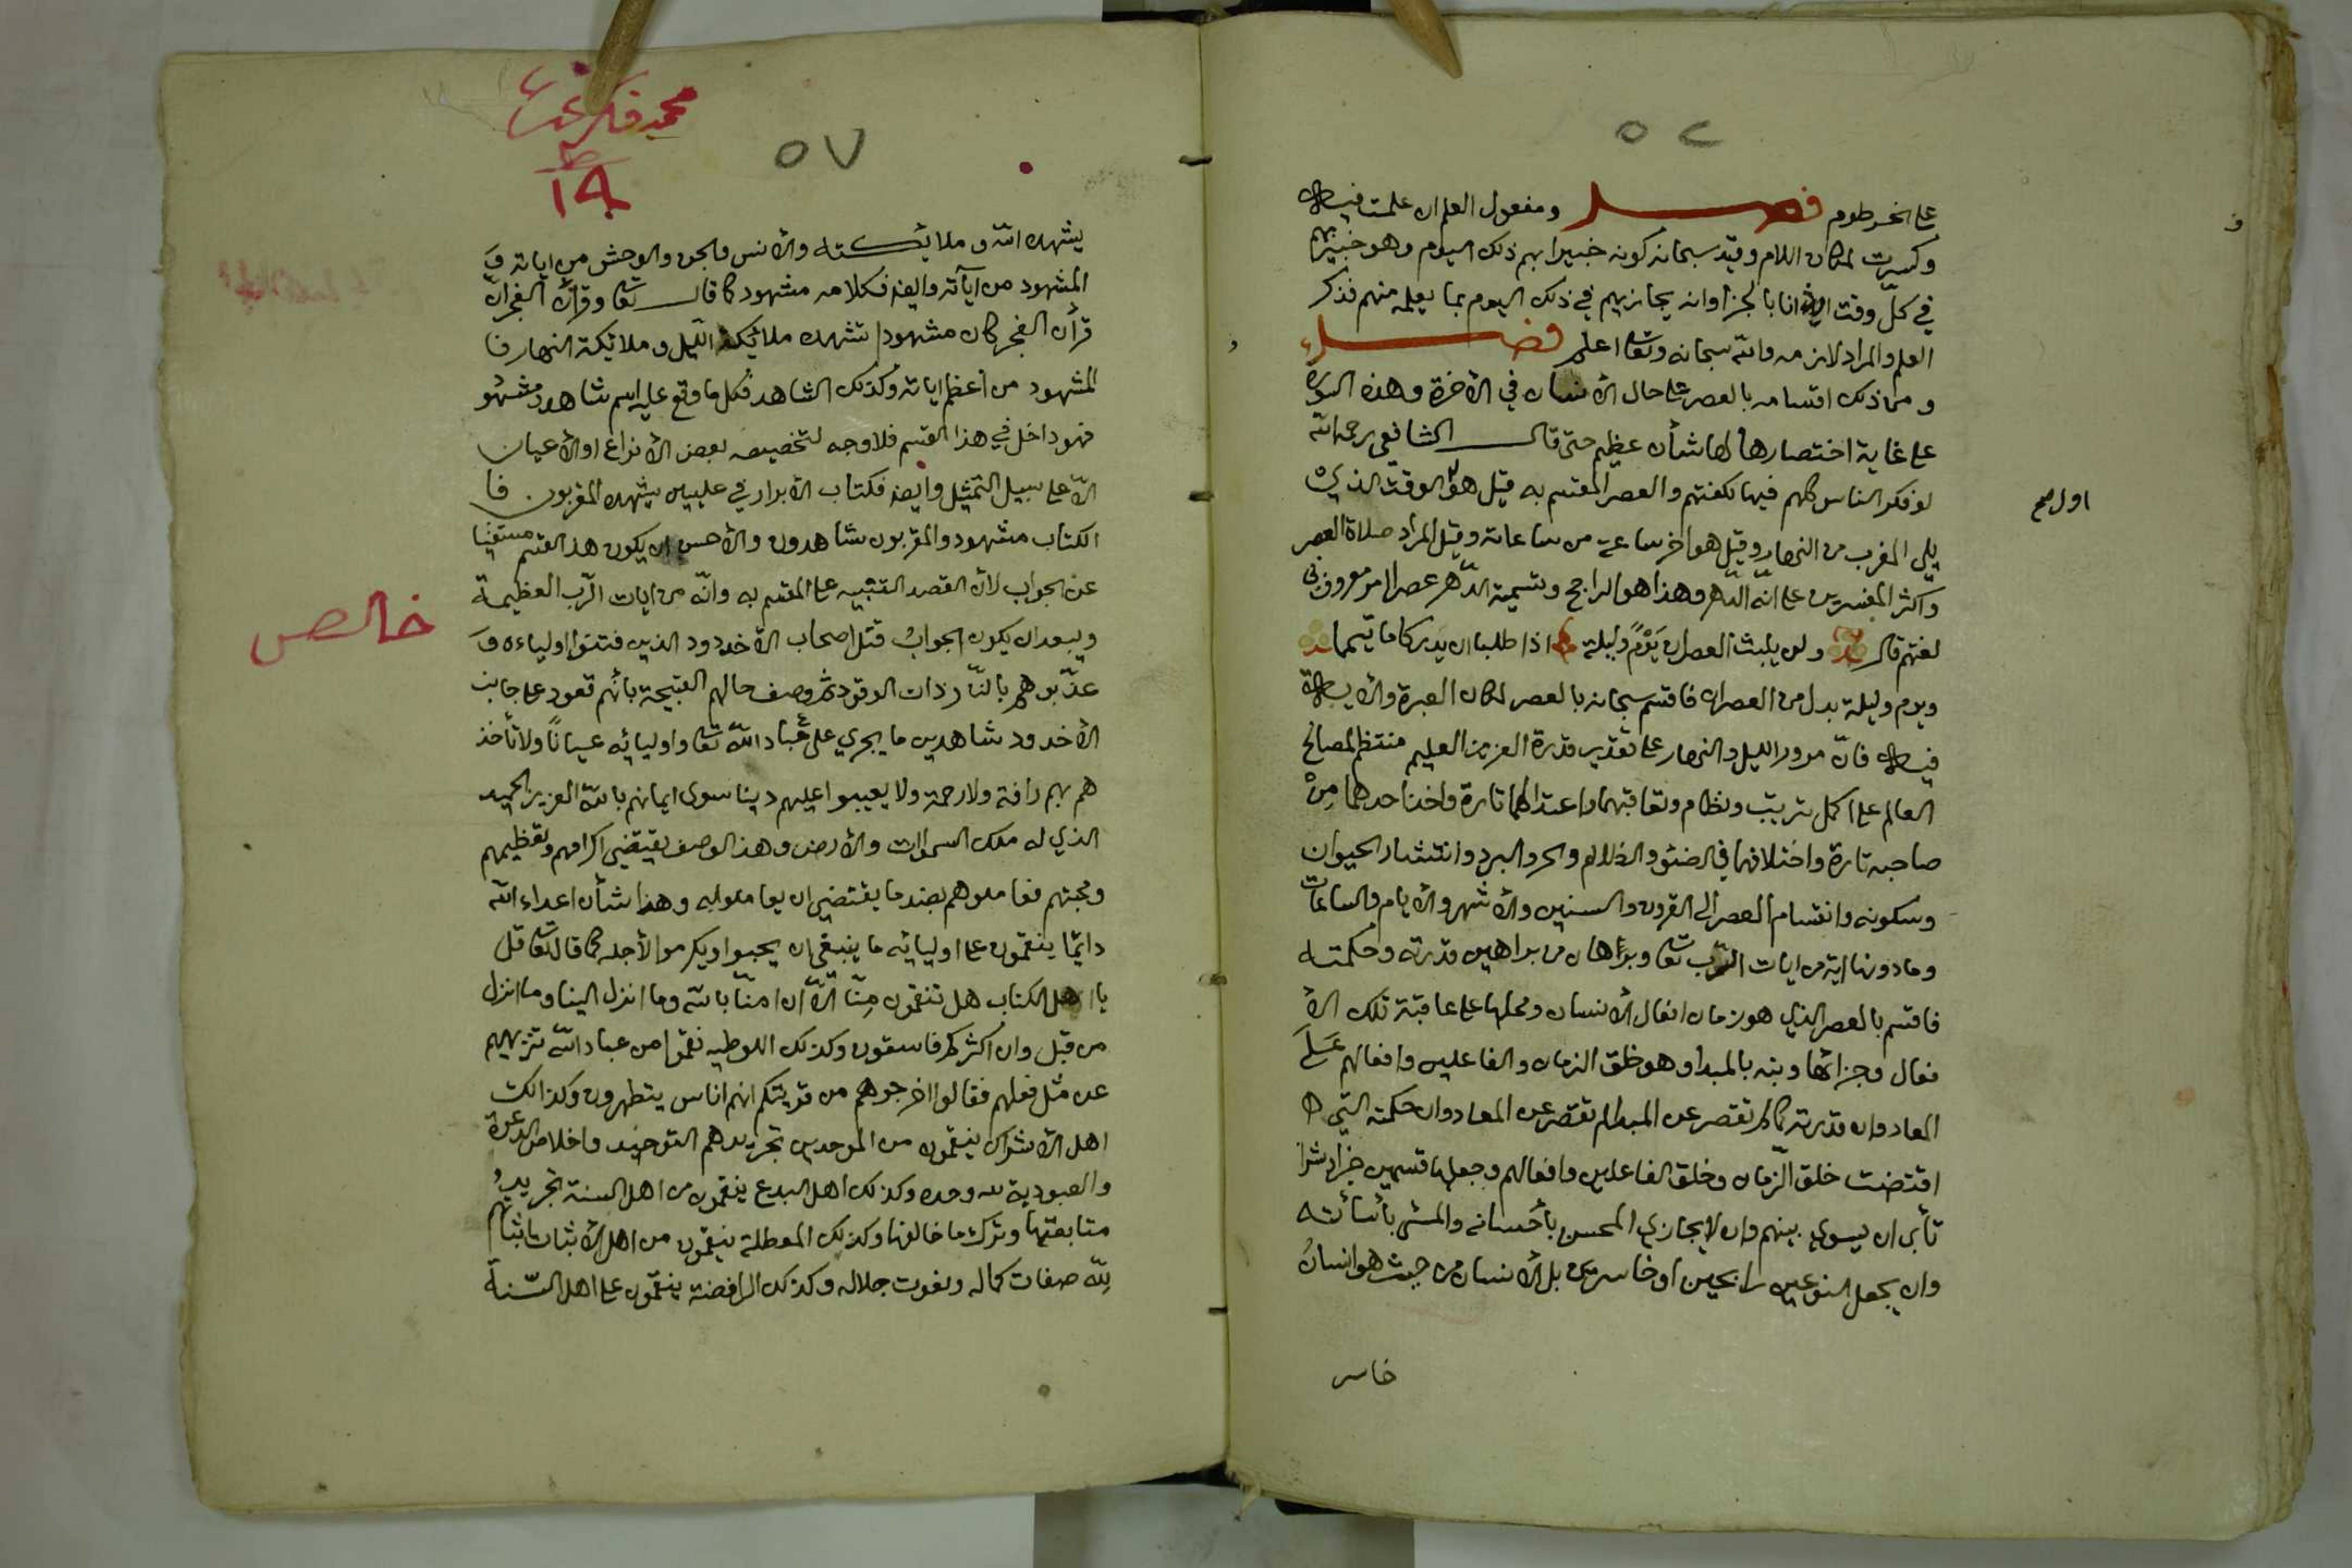 ٥٢
على الخرطوم فصل ومفعول العلم ان علمت فيه
وكسرت لمكان اللام وقيد سبحانه كونه خبيرا بهم ذلك اليوم وهو خبير بهم
في كلّ وقت ايذانا بالجزا وانه يجازيهم في ذلك اليوم بما يعلمه منهم فذكر
العلم والمراد لازمه والله سبحانه وتعا اعلم فصل
ومن ذلك اقسامه بالعصر على حال الأنسان في الأخرة وهذه السورة
على غاية اختصارها لها شأن عظيم حتى قال الشافعي رحمه الله
لو فكر الناس كلهم فيها لكفتهم والعصر المقسم به قيل هو الوقت الذي
اول صح
يلي المغرب من النهار وقيل هو اخر ساعة من ساعاته وقيل المراد صلاة العصر
واكثر المفسرين على انّه الدّهر وهذا هو الراجح وتسمية الدّهر عصرا امر معروف في
لغتهم قال ولن يلبث العصران يَوْمٌ وليلة اذا طلبا ان يدركا ما تيمما
ويوم وليلة بدل من العصران فاقسم سبحانه بالعصر لمكان العبرة والأية
فيه فانّ مرور الليل والنهار على تقدير قدرة العزيز العليم منتظم لمصالح
العالم على اكمل ترتيب ونظام وتعاقبهما واعتدالهما تارة واخذ احدهما مِنْ
صاحبه تارة واختلافهما في الضوء والظلام والحر والبرد وانتشار الحيوان
وسكونه وانقسام العصر الى القرون والسنين والأشهر والأيام والساعات
وما دونها اية من ايات الرّب تعا وبرهان من براهين قدرته وحكمته
فاقسم بالعصر الذي هو زمان افعال الأنسان ومحلها على عاقبة تلك الأ
فعال وجزائها ونبه بالمبدا وهو خلق الزمان والفاعلين وافعالهم عَلَى
المعاد وان قدرته كما لم تقصر عن المبدا لم تقصر عن المعاد وان حكمته التي
اقتضت خلق الزّمان وخلق الفاعلين وافعالهم وجعلها قسمين خيرا وشرا
تأبى ان يسوي بينهم وان لا يجازي المحسن بأحسانه والمسئ بأسائته
وان يجعل النوعين رابحين او خاسرين بل الأنسان من حيث هو انسانُ
خاسر
محمد فكري
١٤
٥٧
يشهده الله وملائكته والأنس والجن والوحش من اياته وَ
المشهود من آياته وايضه فكلامه مشهود كما قال تعا وقرآن الفجر انّ
قرأن الفجر كان مشهودا تشهده ملائكة الليل وملائكة النهار فا
لمشهود من اعظم اياته وكذلك الشاهد فكل ما وقع عليه اسم شاهد ومشهو
فهو داخل في هذا القسم فلا وجه لتخصيصه ببعض الأنواع او الأعيان
الّا على سبيل التمثيل وايضه فكتاب الأبرار في عليين يشهده المقربون فا
الكتاب مشهود والمقربون شاهدون والأحسن ان يكون هذا القسم مستغنيا
عن الجواب لأن القصد التنبيه على المقسم به وانّه من ايات الرّب العظيمة
خالص
ويبعد ان يكون الجوابُ قتل اصحاب الأخدود الذين فتنوا اولياءه وَ
عذّبوهم بالنّار ذات الوقود ثم وصف حالهم القبيحة بأنهم قعود على جانب
الأخدود شاهدين ما يجري على عباد الله تعا واوليائه عيانًا ولا تأخذ
هم بهم رافة ولا رحمة ولا يعيبوا عليهم دينا سوى ايمانهم بالله العزيز الحميد
الذي له ملك السموات والأرض وهذا الوصف يقتضي اكرامهم وتعظيمهم
ومحبتهم فعاملوهم بضد ما يقتضي ان يعاملوا به وهذا شأن اعداء الله
دائمًا ينقمون على اوليائه ما ينبغي ان يحبوا ويكرموا لأجله كما قال تعا قل
يا اهل الكتاب هل تنقمون مِنّا الّا ان امنّا بالله وما انزل الينا وما انزل
من قبل وان اكثركم فاسقون وكذلك اللوطيه نقموا من عباد الله تنزيههم
عن مثل فعلهم فقالوا اخرجوهم من قريتكم انهم اناس يتطهرون وكذالك
اهل الأشراك ينقمون من الموحدين تجريدهم التوحيد واخلاص الدعوة
والعبودية لله وحده وكذلك اهل البدع ينقمون من اهل السنة تجريدُ
متابعتها وترك ما خالفها وكذلك المعطلة ينقمون من اهل الأثبات اثباتهم
لِلّه صفات كماله ونعوت جلاله وكذلك الرافضة ينقمون على اهل السّنة